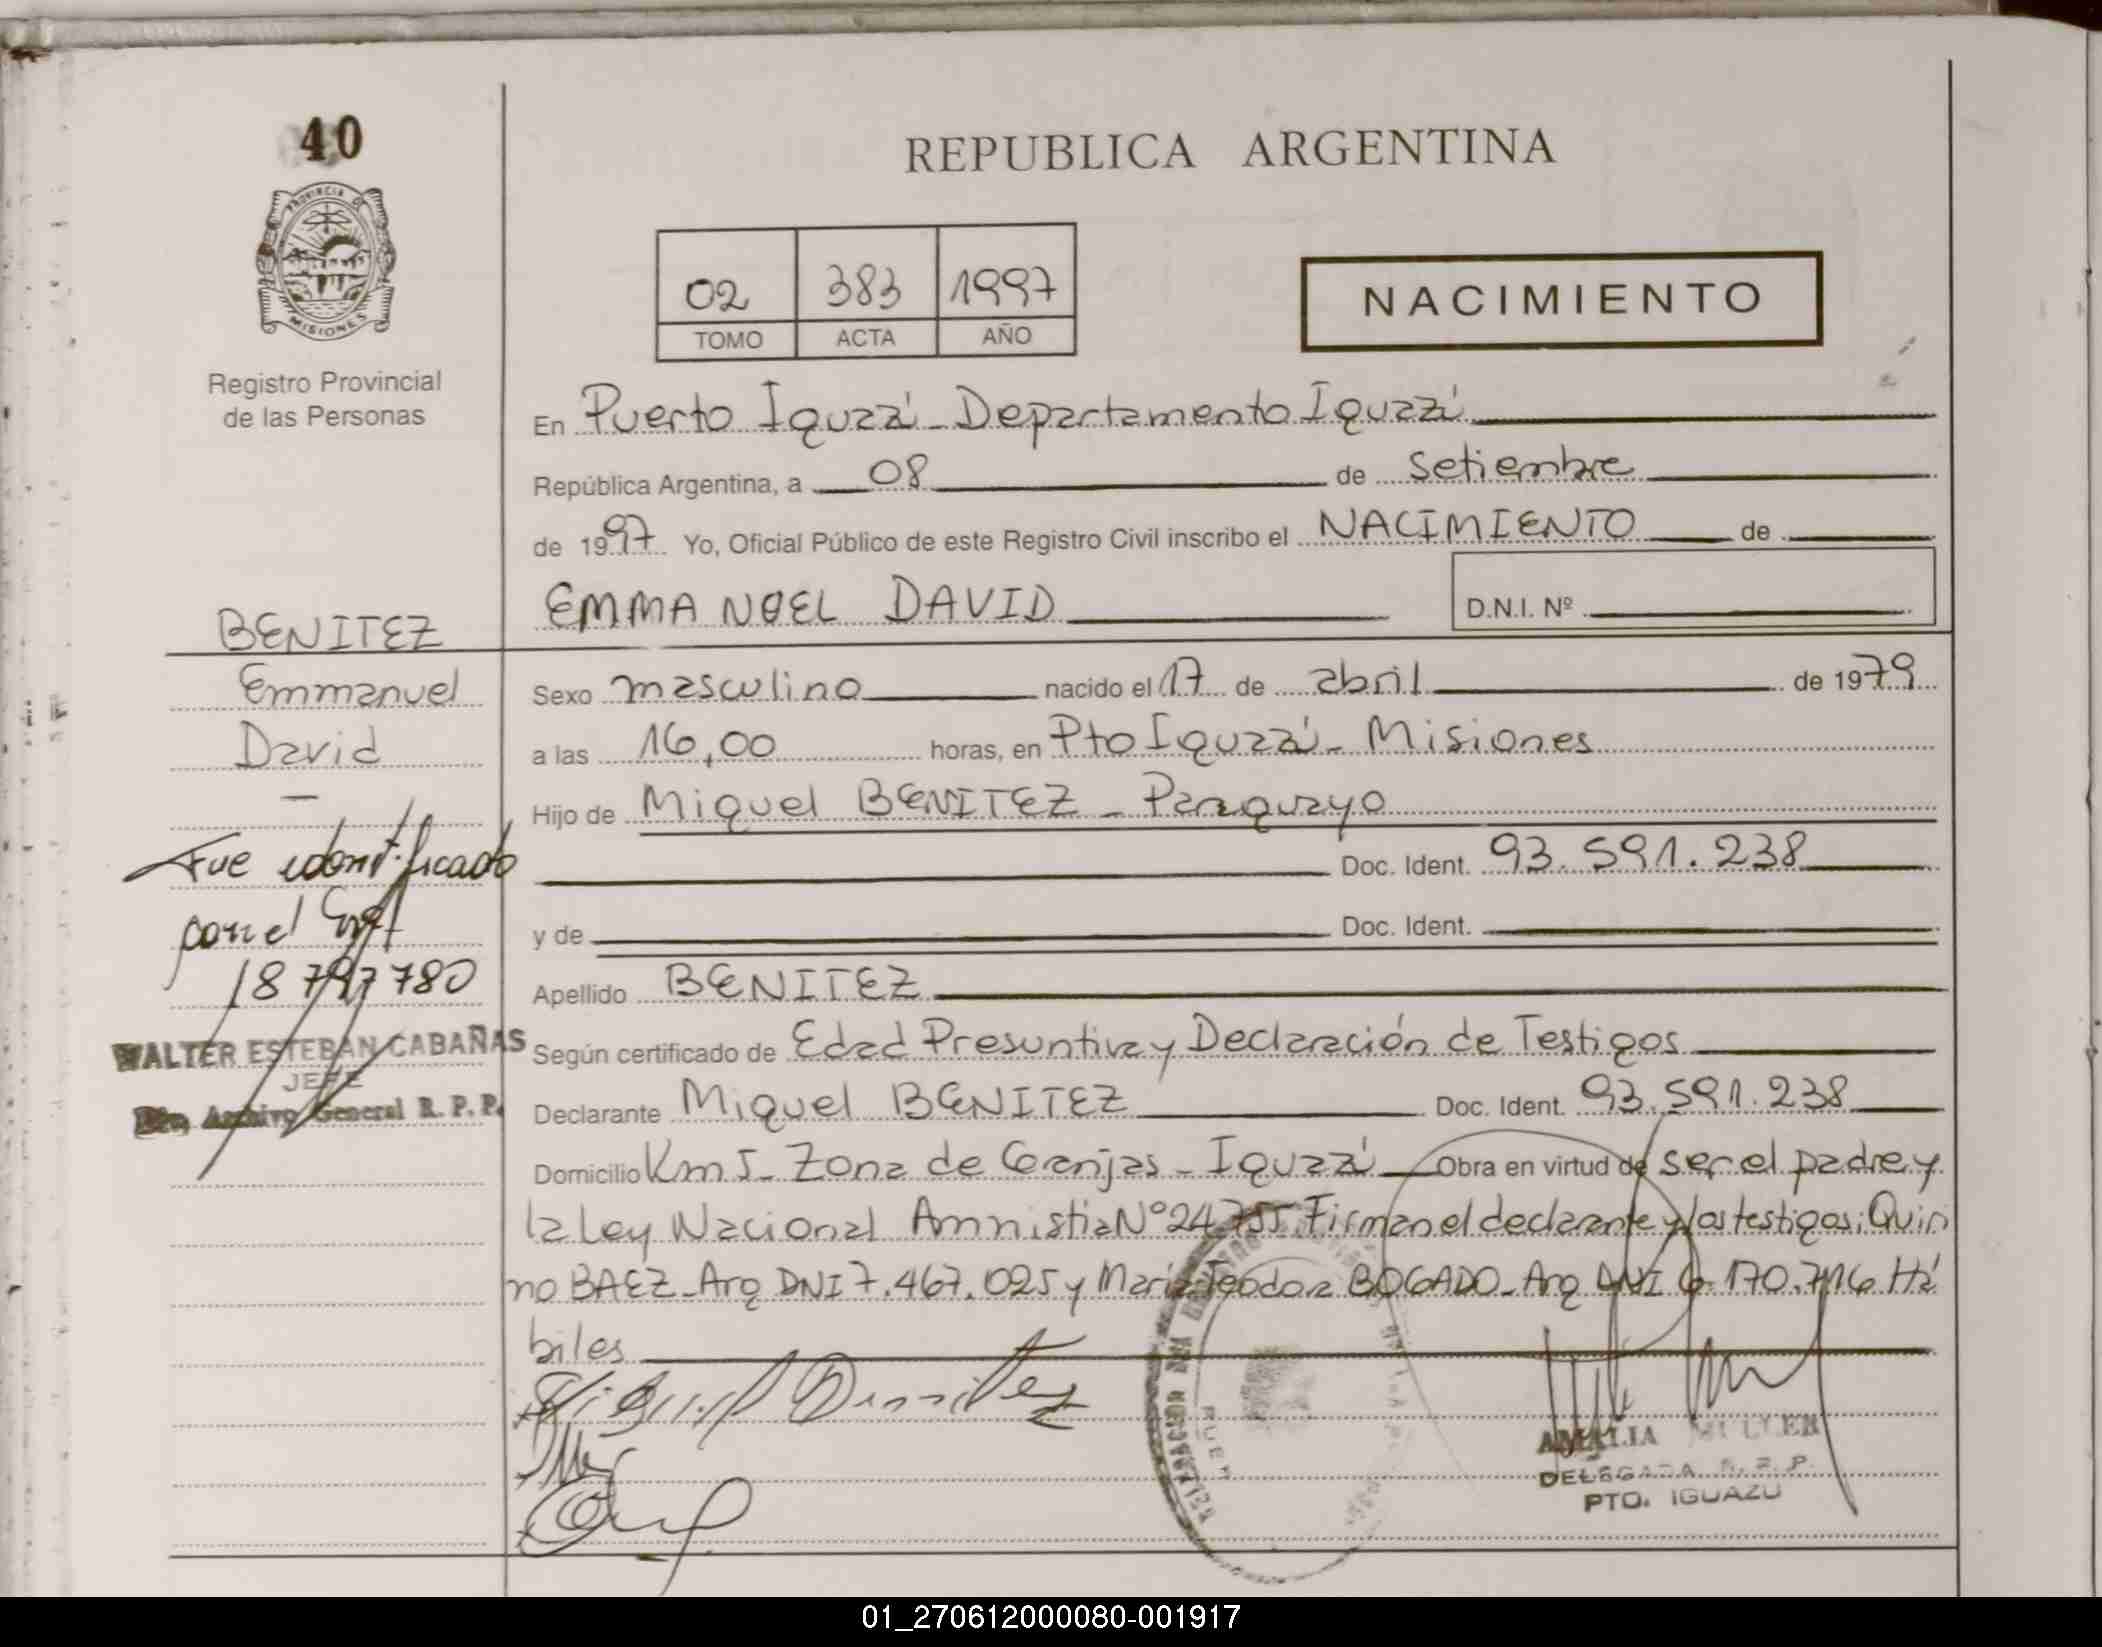 40
PROVINCIA DE
MISIONES
Registro Provincial
de las Personas
REPUBLICA ARGENTINA
02 383 1997
TOMO ACTA AÑO
NACIMIENTO
En Puerto Iguazú - Departamento Iguazú
República Argentina, a 08 de Setiembre
de 1997 Yo, Oficial Público de este Registro Civil inscribo el NACIMIENTO de
EMMANUEL DAVID D.N.I. Nº
BENITEZ
Emmanuel
David
Fue identificado
con el
18 797 780
WALTER ESTEBAN CABAÑAS
JEFE
Archivo General R. P. P.
Sexo masculino nacido el 17 de abril de 1979
a las 16,00 horas, en Pto Iguazú - Misiones
Hijo de Miguel BENITEZ - Paraguayo
Doc. Ident. 93.591.238
y de Doc. Ident.
Apellido BENITEZ
Según certificado de Edad Presuntiva y Declaración de Testigos
Declarante Miguel BENITEZ Doc. Ident. 93.591.238
Domicilio Km 5 - Zona de Granjas - Iguazú Obra en virtud de ser el padre y
la Ley Nacional Amnistia Nº 24.755 Firman el declarante y los testigos: Quiri
no BAEZ - Arg DNI 7.467.025 y Maria Teodora BOGADO - Arg DNI 6.170.716 Há
biles
Miguel Benitez
AMALIA MULLER
DELEGADA R. P. P.
PTO. IGUAZU
01_270612000080-001917